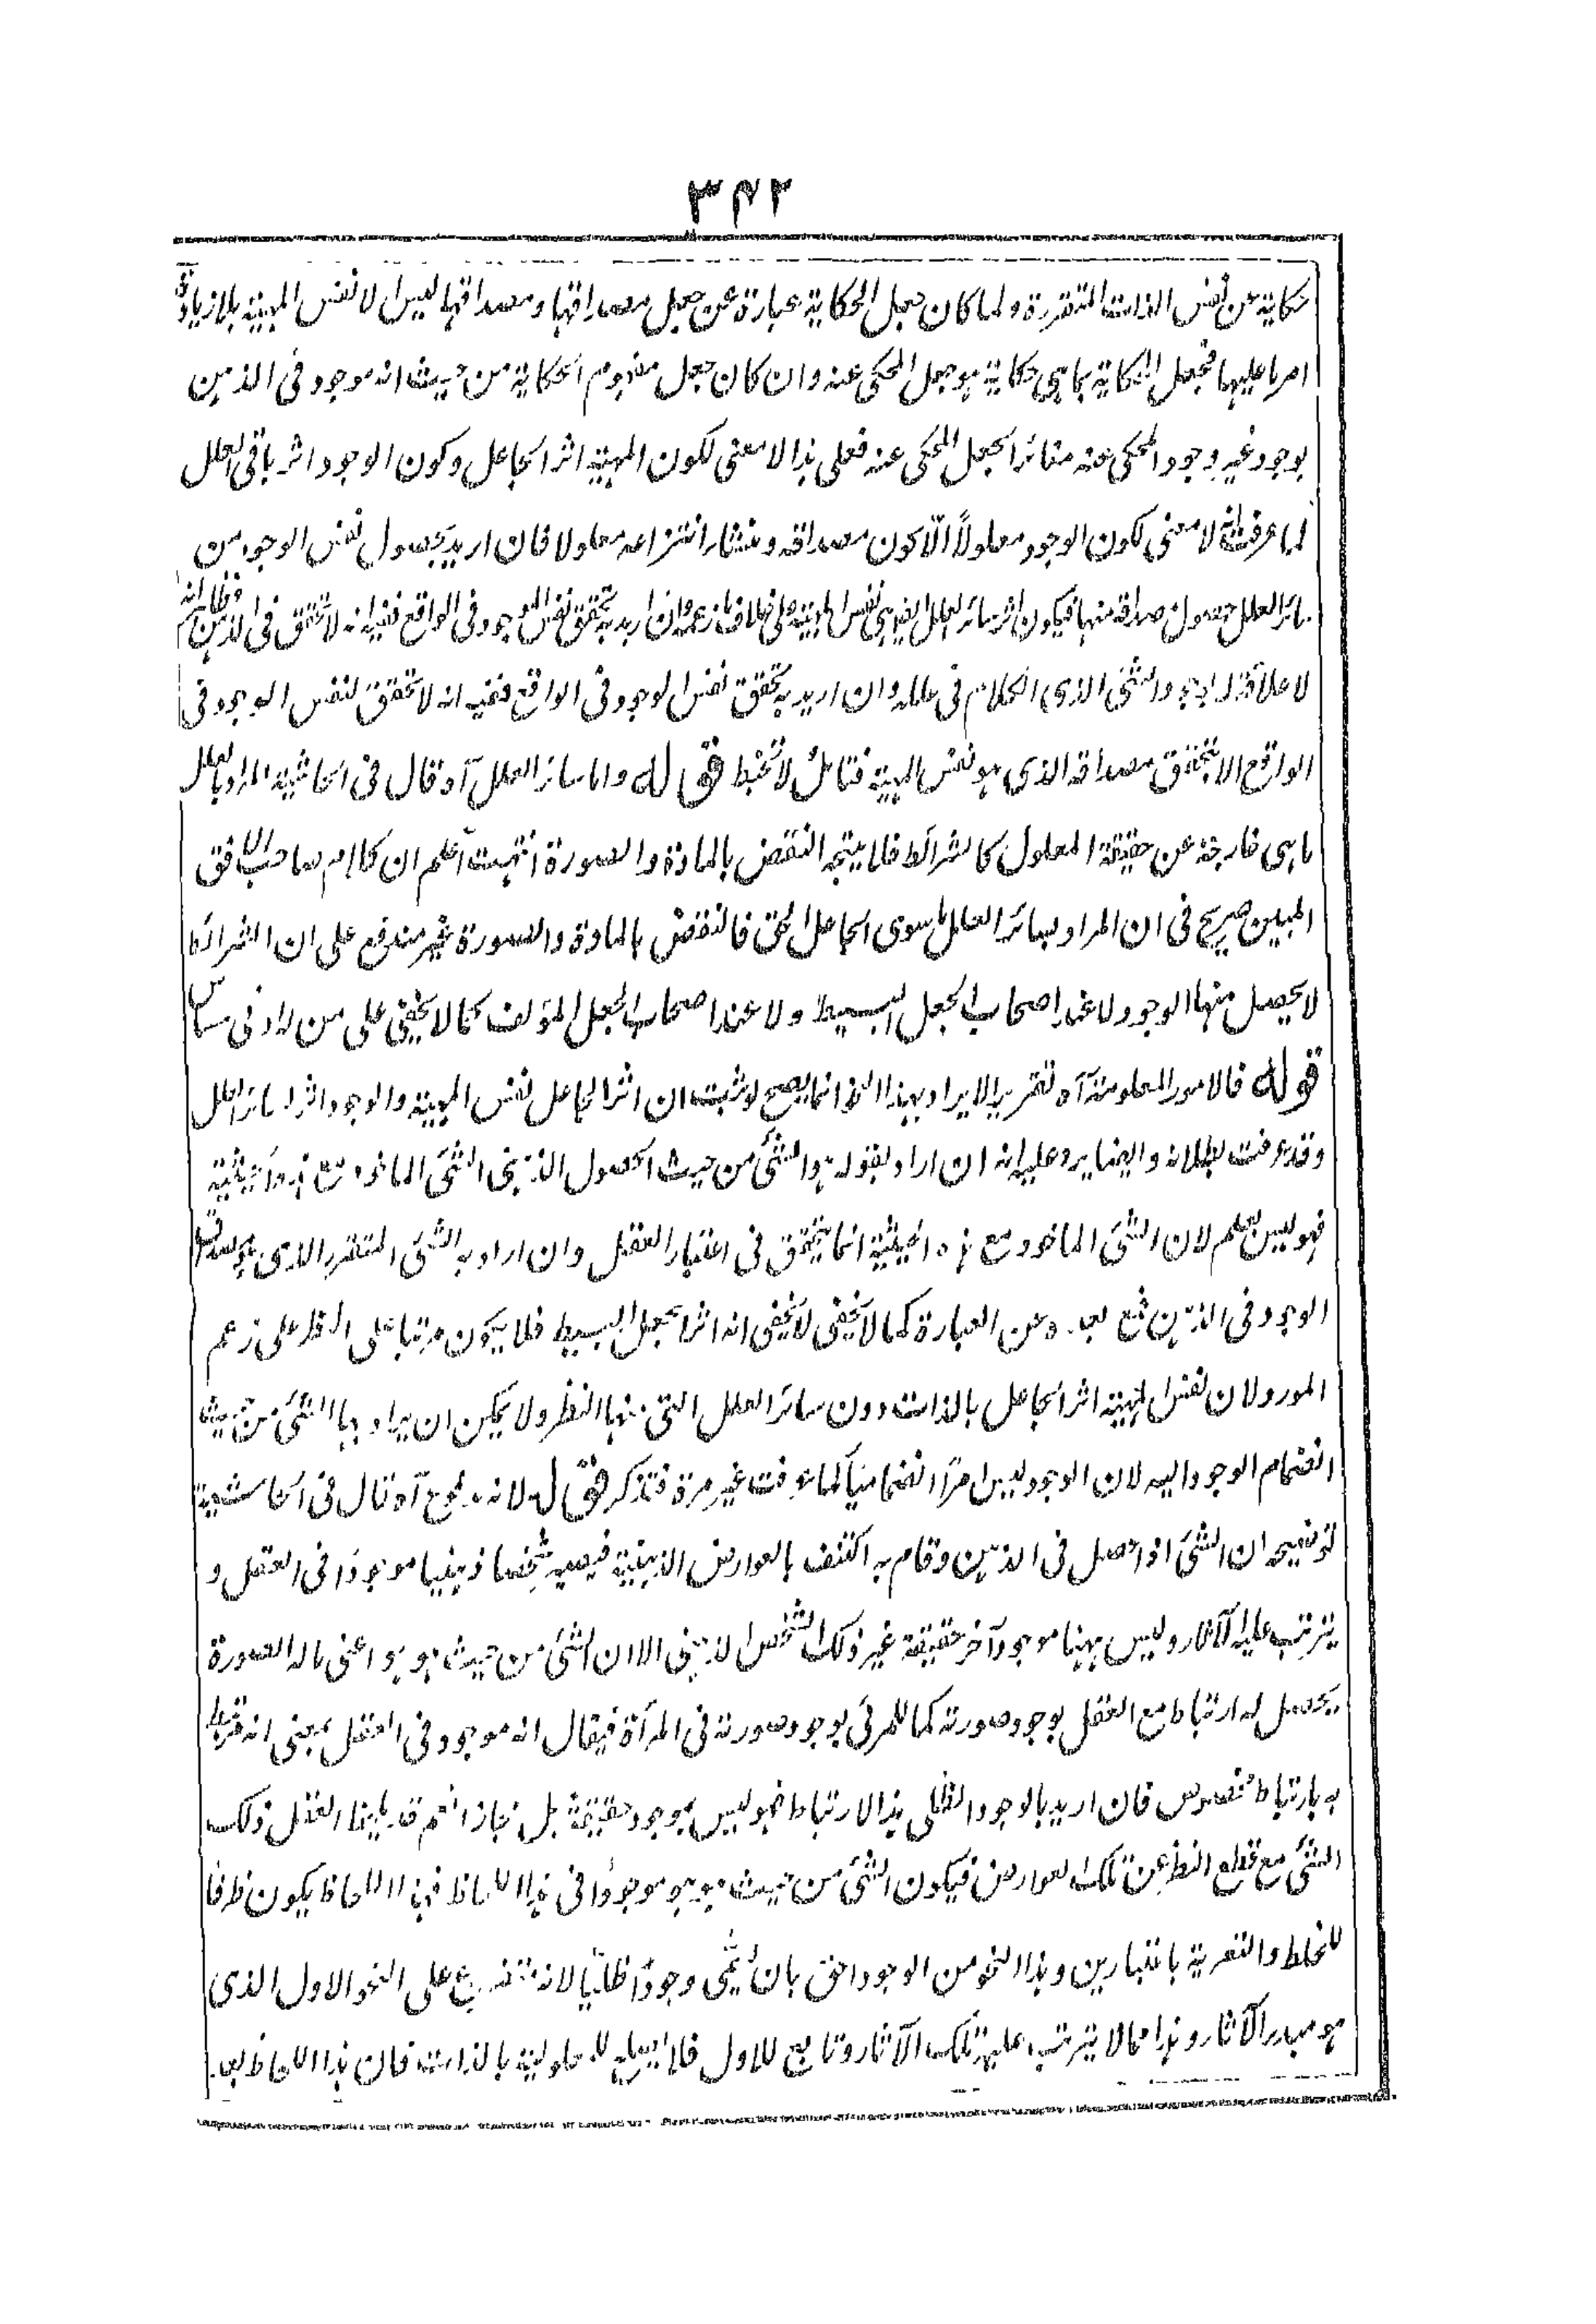 ٣٤٢
حكاية عن نفس الذات المتقررة ولما كان جعل الحكاية عبارة عن جعل مصداقها ومصداقها ليس الا نفس المهية بلا زيادة
امر ما عليها فجعل الحكاية بما هى حكاية هو جعل المحكى عنه وان كان جعل مفهوم الحكاية من حيث انه موجود فى الذهن
بوجود غير وجود المحكى عنه مغائرا لجعل المحكى عنه فعلى هذا لا معنى لكون المهية اثر الجاعل وكون الوجود اثر باقى العلل
لما عرفت انه لا معنى لكون الوجود معلولاً الا كون مصداقه ومنشأ انتزاعه معلولا فان اريد بحصول نفس الوجود من
سائر العلل حصول مصداقه منها فيكون اثر سائر العلل ايضا هى نفس المهية وان اريد به تحقق نفس الوجود فى الواقع ففيه انه لا تحقق فى الذهن
لا علاقة له بوجود الشئ الذى الكلام فى علله وان اريد به تحقق نفس الوجود فى الواقع ففيه انه لا تحقق لنفس الوجود فى
الواقع الا بتحقق مصداقه الذى هو نفس المهية فتامل لا تخبط قوله واما سائر العلل آه قال فى الحاشية المراد بالعلل
ما هى خارجة عن حقيقة المعلول كالشرائط فلا يتجه النقض بالمادة والصورة انتهت اعلم ان كلام صاحب الافق
المبين صريح فى ان المراد بسائر العلل ما سوى الجاعل الحق فالنقض بالمادة والصورة غير مندفع على ان الشرائط
لا يحصل منها الوجود لا عند اصحاب الجعل البسيط ولا عند اصحاب الجعل المؤلف كما لا يخفى على من له ادنى مساس
قوله فالامور المعلومة آه تقرير الايراد بهذا النمط انما يصح لو ثبت ان اثر الجاعل نفس المهية والوجود اثر لسائر العلل
وقد عرفت بطلانه وايضا يرد عليه انه ان اراد بقوله هو الشئ من حيث الحصول الذهنى الشئ الماخوذ مع هذه الحيثية
فهو ليس بعلم لان الشئ الماخوذ مع هذه الحيثية انما يتحقق فى اعتبار العقل وان اراد به الشئ المتقرر الذى هو مصداق
الوجود فى الذهن فمع بعده عن العبارة كما لا يخفى لا يخفى انه اثر الجعل البسيط فلا يكون مرتبا على النظر على زعم
المورد لان نفس المهية اثر الجاعل بالذات دون سائر العلل التى منها النظر ولا يمكن ان يراد بها الشئ من حيث
انضمام الوجود اليه لان الوجود ليس امرًا انضماميًا كما عرفت غير مرة فتذكر قوله لانه ممنوع آه قال فى الحاشية
توضيحه ان الشئ اذا حصل فى الذهن وقام به اكتنف بالعوارض الذهنية فيصير شخصا ذهنيا موجودًا فى العقل و
يترتب عليه الآثار وليس ههنا موجود آخر حقيقة غير ذلك الشخص الذهنى الا ان الشئ من حيث هو هو اعنى ماله الصورة
يحصل له ارتباط مع العقل بوجود صورته كما للمرئى بوجود صورته فى المرآة فيقال انه موجود فى العقل بمعنى انه مرتبط
به بارتباط مخصوص فان اريد بالوجود الظلى هذا الارتباط فهو ليس بموجود حقيقة بل مجازا نعم قد يلاحظ العقل ذلك
الشئ مع قطع النظر عن تلك العوارض فيكون الشئ من حيث هو هو موجودًا فى هذا اللحاظ فهذا اللحاظ يكون ظرفا
للخلط والتعرية باعتبارين وهذا النحو من الوجود احق بان يسمى وجودًا ظليًا لانه متفرع على النحو الاول الذى
هو مبدء الآثار وهذا مما لا يترتب عليه تلك الآثار وتابع للاول فلا يصلح للمعلولية بالذات فان هذا اللحاظ بعد